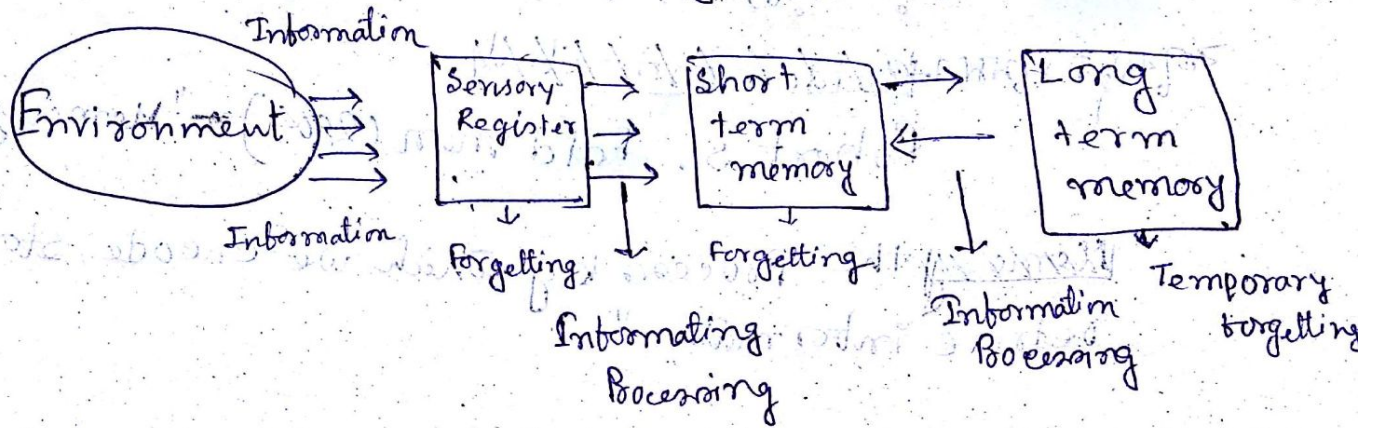 Information
Environment
Information
Sensory
Register
Forgetting
Informating
Processing
Short
term
memory
Forgetting
Information
Processing
Long
term
memory
Temporary
forgetting